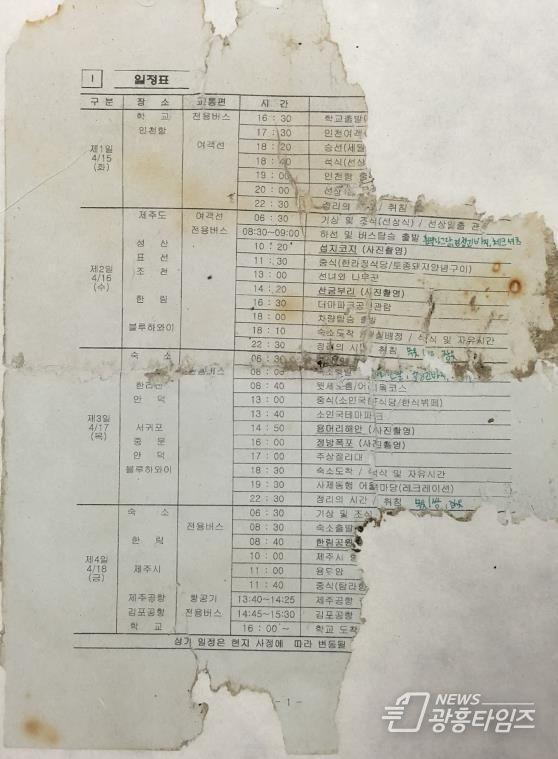 I 일정표
구 분 장 소 교통편 시 간
제1일 4/15 (화)
학 교 전용버스 16 : 30 학교출발
인천항 17 : 30 인천여객
여객선 18 : 20 승선(세월
18 : 40 석식(선상
19 : 00 인천항 출
20 : 00 선상
22 : 30 정리의 / 취침
제2일 4/16 (수)
제주도 여객선 06 : 30 기상 및 조식(선상식) / 선상일출 관
전용버스 08:30~09:00 하선 및 버스탑승 출발
성 산 10 : 20 섭지코지 (사진촬영)
표 선 11 : 30 중식(한라정식당/토종돼지양념구이)
조 천 13 : 00 선녀와 나무꾼
14 : 20 산굼부리 (사진촬영)
한 림 16 : 30 더마파크공연관람
18 : 00 차량탑승 출발
블루하와이 18 : 10 숙소도착 / 실배정 / 석식 및 자유시간
22 : 30 정리의 시간 / 취침
제3일 4/17 (목)
숙 소 06 : 30
08 : 00 숙소출발
한라산 08 : 40 윗세오름/어리목코스
안 덕 13 : 00 중식(소인국한식당/한식뷔페)
13 : 40 소인국테마파크
서귀포 14 : 50 용머리해안 (사진촬영)
중 문 16 : 00 정방폭포 (사진촬영)
안 덕 17 : 00 주상절리대
블루하와이 18 : 30 숙소도착 / 석식 및 자유시간
19 : 30 사제동행 어울 마당(레크레이션)
22 : 30 정리의 시간 / 취침
제4일 4/18 (금)
숙 소 06 : 30 기상 및 조식
전용버스 08 : 30 숙소출발
한 림 08 : 40 한림공원
10 : 00 제주시
제주시 11 : 00 용두암
11 : 40 중식(탐라
제주공항 항공기 13:40~14:25 제주공항
김포공항 전용버스 14:45~15:30 김포공항
학 교 16 : 00 ~ 학교 도착
상기 일정은 현지 사정에 따라 변동될
- 1 -
NEWS
광흥타임즈